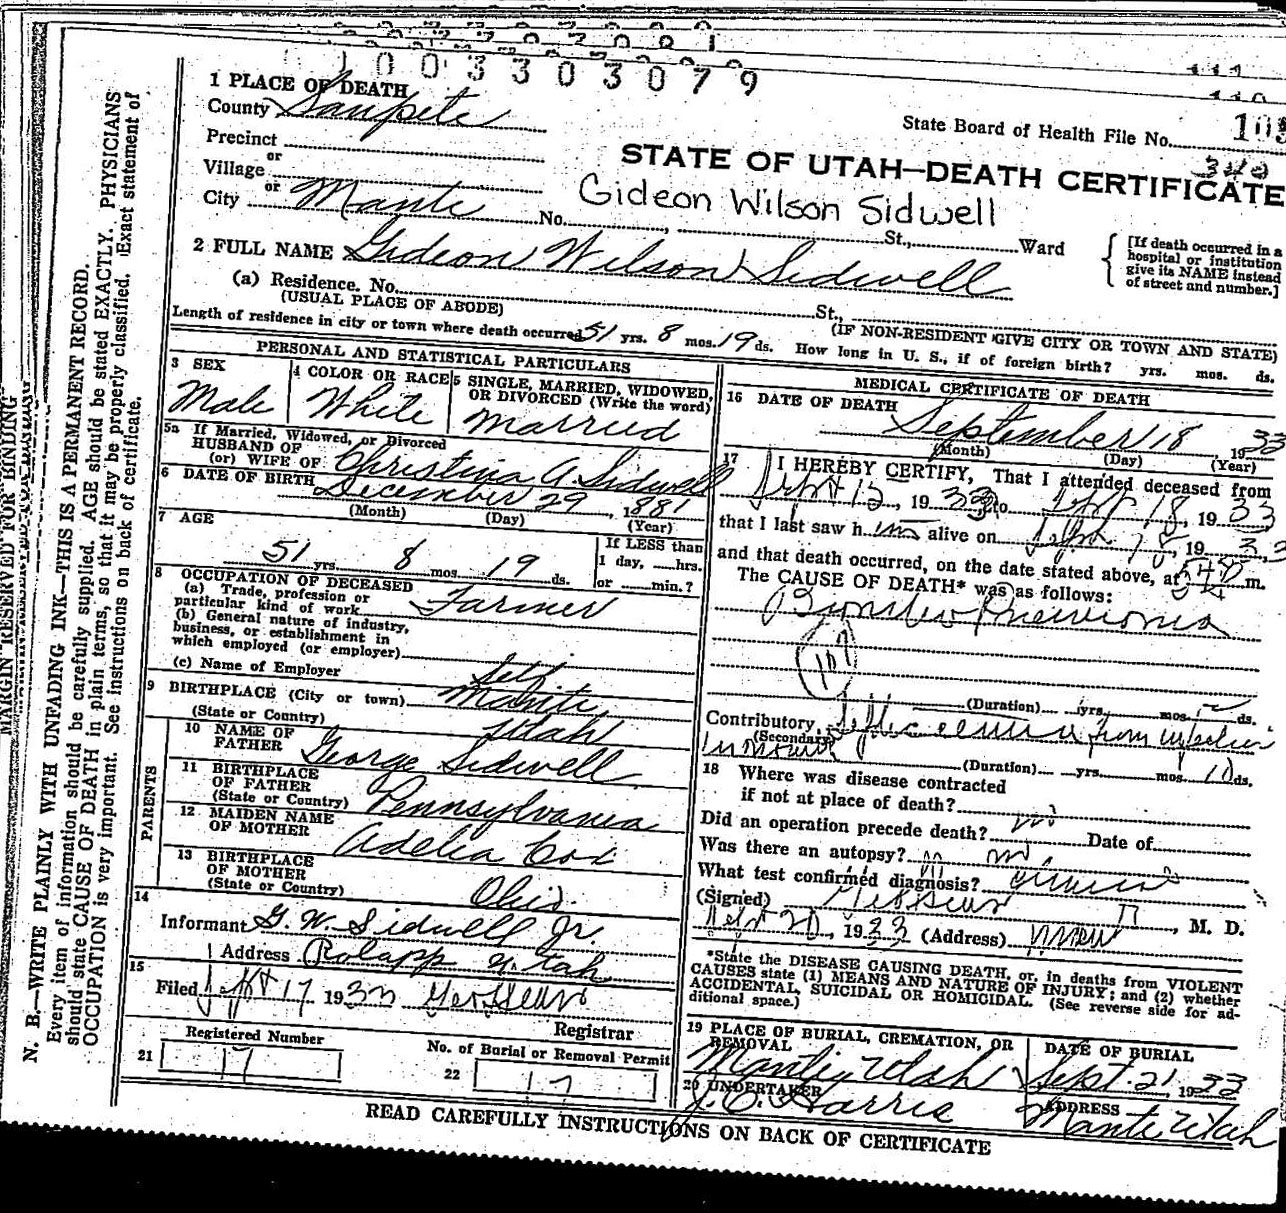 1003303079
1 PLACE OF DEATH
County Sanpete
State Board of Health File No.
Precinct
or
Village
or
City Manti No. St., Ward
STATE OF UTAH—DEATH CERTIFICATE
Gideon Wilson Sidwell
[If death occurred in a
hospital or institution
give its NAME instead
of street and number.]
2 FULL NAME Gideon Wilson Sidwell
(a) Residence. No. St.,
(USUAL PLACE OF ABODE) (IF NON-RESIDENT GIVE CITY OR TOWN AND STATE)
Length of residence in city or town where death occurred 51 yrs. 8 mos. 19 ds. How long in U. S., if of foreign birth? yrs. mos. ds.
PERSONAL AND STATISTICAL PARTICULARS
3 SEX
Male
4 COLOR OR RACE
White
5 SINGLE, MARRIED, WIDOWED,
OR DIVORCED (Write the word)
Married
5a If Married, Widowed, or Divorced
HUSBAND OF
(or) WIFE OF Christina A. Sidwell
6 DATE OF BIRTH December 29, 1881
(Month) (Day) (Year)
7 AGE
51 yrs. 8 mos. 19 ds.
If LESS than
1 day, hrs.
or min.?
8 OCCUPATION OF DECEASED
(a) Trade, profession or
particular kind of work Farmer
(b) General nature of industry,
business, or establishment in
which employed (or employer)
(c) Name of Employer Self
9 BIRTHPLACE (City or town) Manti
(State or Country) Utah
PARENTS
10 NAME OF
FATHER George Sidwell
11 BIRTHPLACE
OF FATHER
(State or Country) Pennsylvania
12 MAIDEN NAME
OF MOTHER Adelia Cox
13 BIRTHPLACE
OF MOTHER
(State or Country) Ohio
14
Informant G. W. Sidwell Jr.
Address Rolapp Utah
15
Filed Sept 17 1933
Registrar
21 Registered Number
17
22 No. of Burial or Removal Permit
17
MEDICAL CERTIFICATE OF DEATH
16 DATE OF DEATH September 18, 1933
(Month) (Day) (Year)
17 I HEREBY CERTIFY, That I attended deceased from
Sept 12, 1933, to Sept 18, 1933
that I last saw him alive on Sept 18, 1933
and that death occurred, on the date stated above, at m.
The CAUSE OF DEATH* was as follows:
Broncho Pneumonia
(Duration) yrs. mos. ds.
Contributory Septicemia from
(Secondary)
(Duration) yrs. mos. 10 ds.
18 Where was disease contracted
if not at place of death?
Did an operation precede death? no Date of
Was there an autopsy? no
What test confirmed diagnosis? clinical
(Signed) , M. D.
Sept 20, 1933 (Address) Manti
*State the DISEASE CAUSING DEATH, or, in deaths from VIOLENT
CAUSES state (1) MEANS AND NATURE OF INJURY; and (2) whether
ACCIDENTAL, SUICIDAL OR HOMICIDAL. (See reverse side for ad-
ditional space.)
19 PLACE OF BURIAL, CREMATION, OR
REMOVAL
Manti, Utah
DATE OF BURIAL
Sept. 21, 1933
20 UNDERTAKER
J. C. Harris
ADDRESS
Manti Utah
READ CAREFULLY INSTRUCTIONS ON BACK OF CERTIFICATE
MARGIN RESERVED FOR BINDING
N. B.—WRITE PLAINLY WITH UNFADING INK—THIS IS A PERMANENT RECORD.
Every item of information should be carefully supplied. AGE should be stated EXACTLY. PHYSICIANS
should state CAUSE OF DEATH in plain terms, so that it may be properly classified. Exact statement of
OCCUPATION is very important. See instructions on back of certificate.